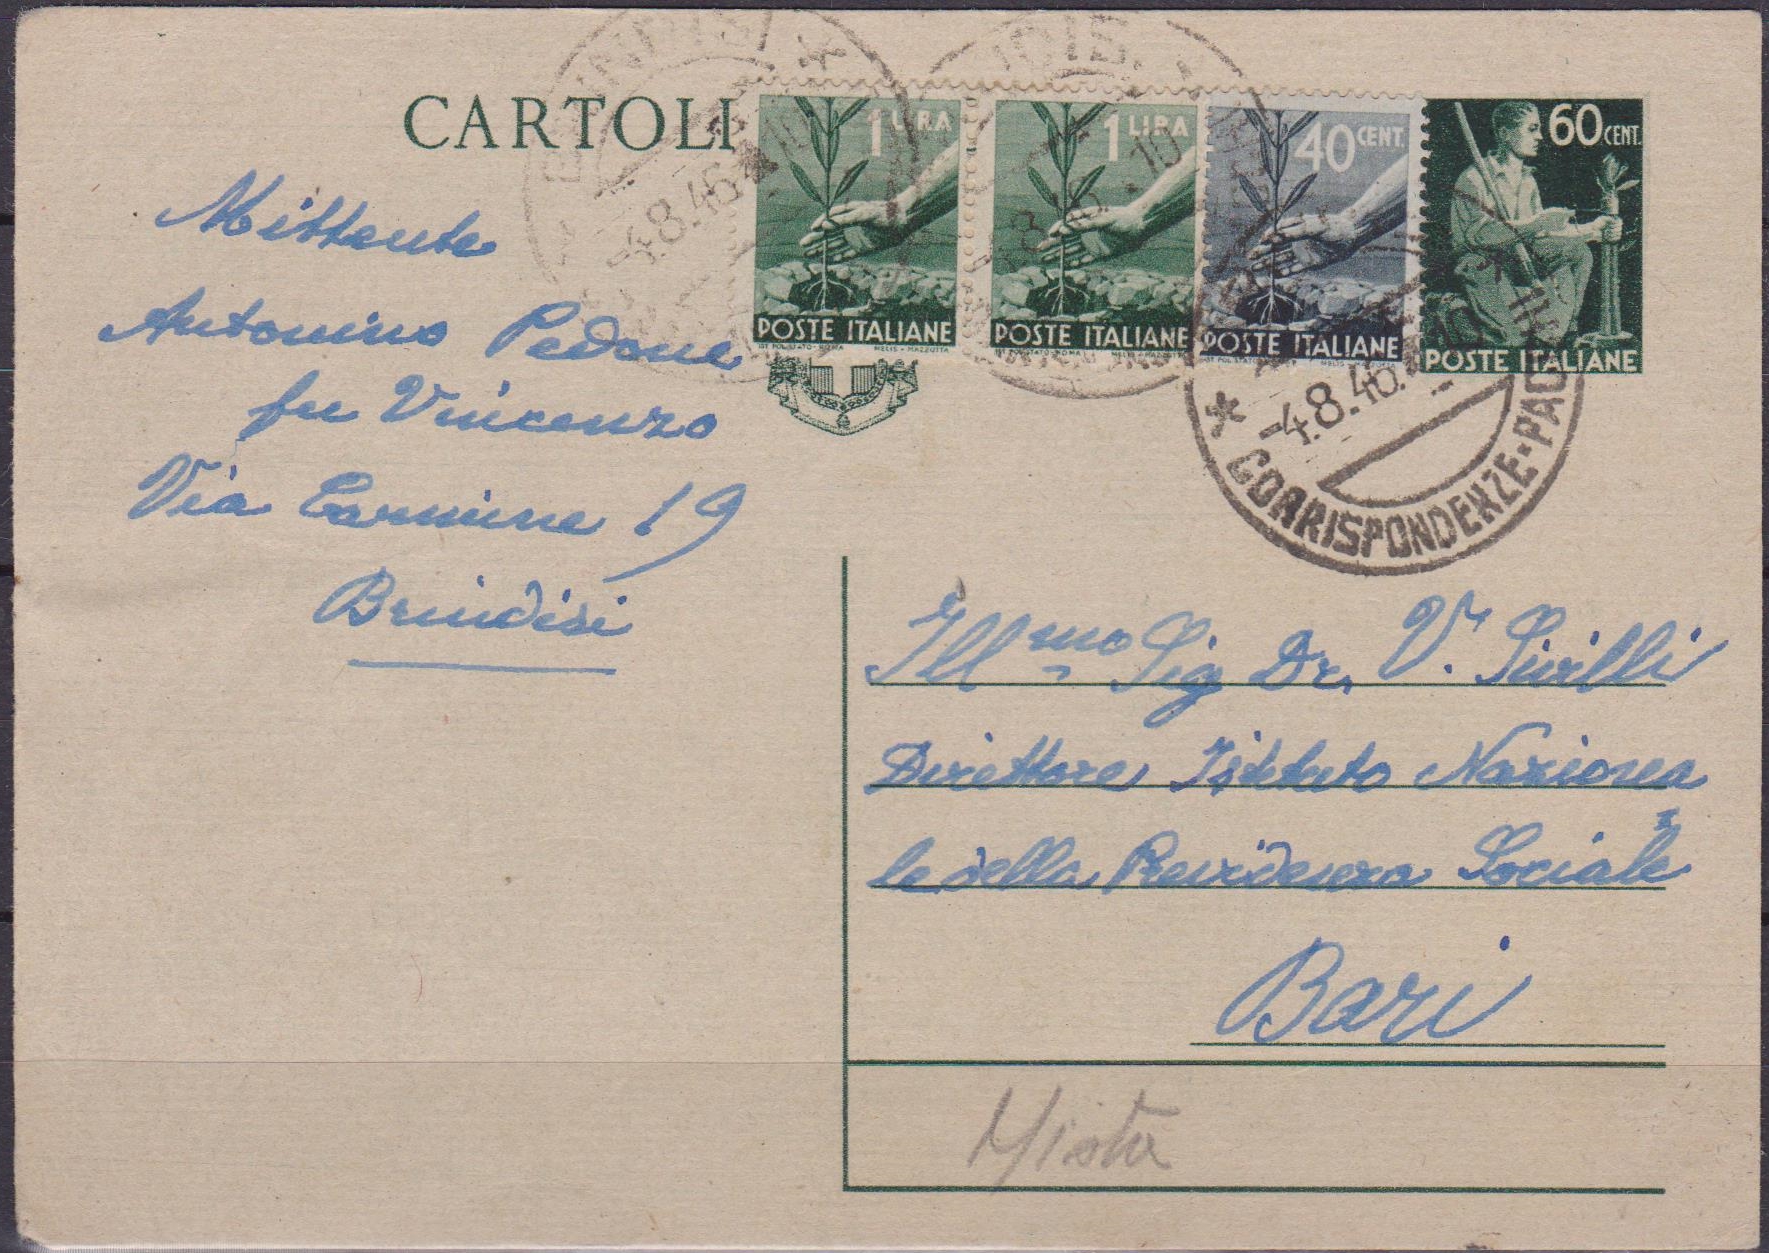 CARTOLI
1 LIRA
POSTE ITALIANE
IST. POLIGRAFICO - ROMA MELIS - MAZZOTTA
1 LIRA
POSTE ITALIANE
40 CENT.
POSTE ITALIANE
60 CENT.
POSTE ITALIANE
BRINDISI
-4.8.46
-4.8.46.10
* CORRISPONDENZE-PACCHI
Mittente
Antonino Pedone
fu Vincenzo
Via Carmine 19
Brindisi
Ill.mo Sig Dr. V. Sivilli
Direttore Istituto Naziona
le della Previdenza Sociale
Bari
Mista